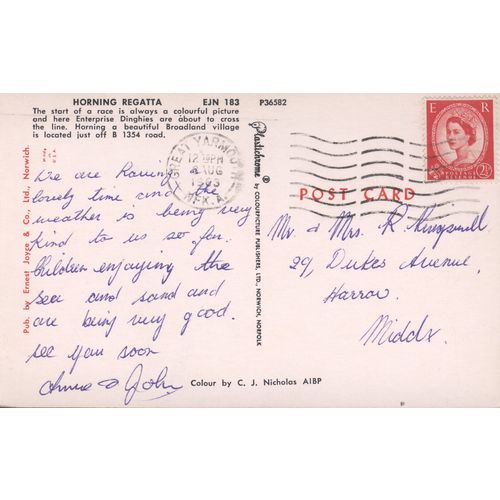 HORNING REGATTA EJN 183 P36582
The start of a race is always a colourful picture
and here Enterprise Dinghies are about to cross
the line. Horning a beautiful Broadland village
is located just off B 1354 road.
GREAT YARMOUTH
12 PM
AUG
NFK. A.
E R
POSTAGE
2½
Pub. by Ernest Joyce & Co., Ltd., Norwich.
Plastichrome ® by COLOURPICTURE PUBLISHERS, LTD., NORWICH, NORFOLK
POST CARD
We are having a
lovely time and the
weather is being very
kind to us so far.
Children enjoying the
sea and sand and
are being very good.
see you soon
John
Mr. & Mrs. R.
29, Dukes Avenue,
Harrow.
Middx.
Colour by C. J. Nicholas AIBP